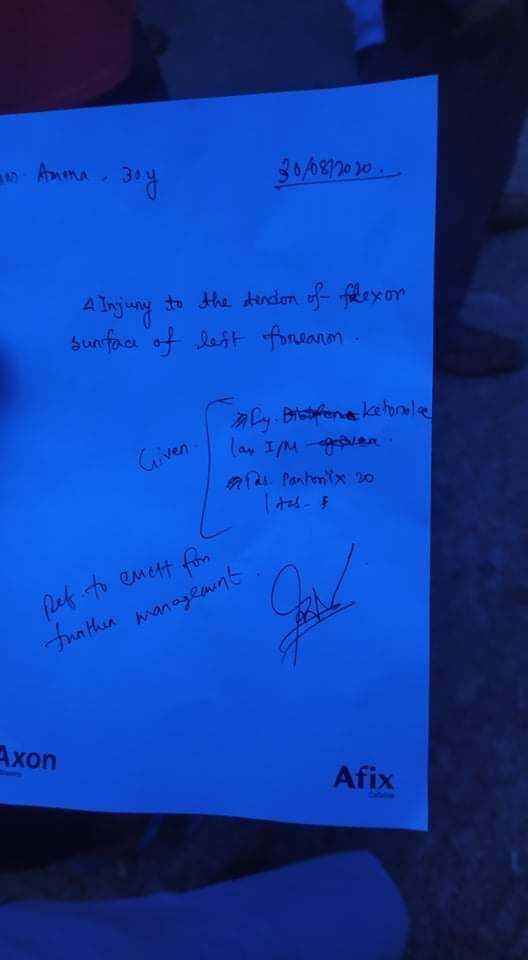 Amena, 30y
30/08/2020.
Δ Injury to the tendon of flexor
surface of left forearm.
Given.
Iny. Ketorolac
I/M given.
Tab. Pantonix 20
1 tab-
Ref. to CMCH for
further management.
Axon
Afix